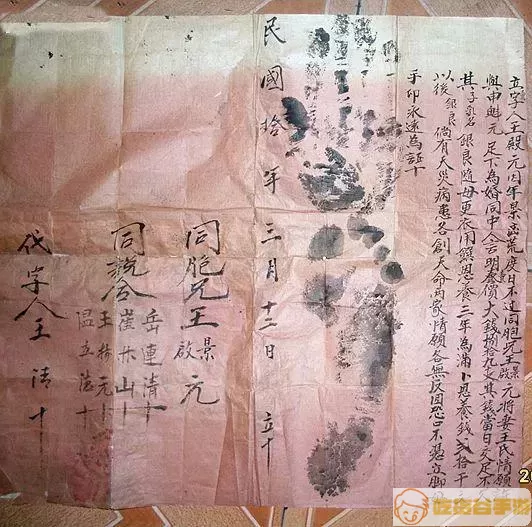 立字人王殿元因年景荒度日不過同胞兄王景啟元將妻王氏情願
與申魁元足下為婚同中人言明價大錢捌拾九文其錢當日交足不欠
其子乳名銀良隨母更衣用饌恩養三年為滿卜恩養錢弍拾千
以後銀良倘有天災病患各創天命兩家情願各無反回恐口不憑立脚
手印永远為証十
民國拾年三月十二日立十
同胞兄王景啟元
同說合
岳連清十
崔林山十
王林元十
温立法十
代字人王清十